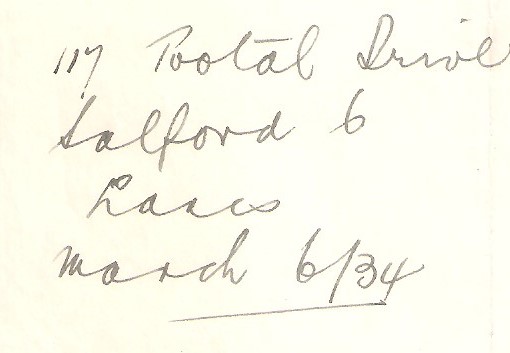 117 Tootal Drive
Salford 6
Lancs
March 6/34